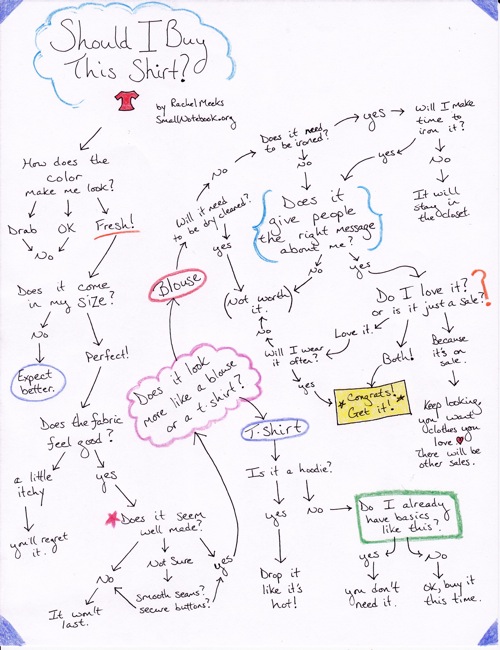 Should I Buy
This Shirt?
by Rachel Meeks
SmallNotebook.org
How does the
color
make me look?
Drab
OK
Fresh!
No
Does it come
in my SIZE?
No
Expect
better.
Perfect!
Does the fabric
feel good?
a little
itchy
you'll regret
it.
yes
Does it seem
well made?
No
Not Sure
yes
It won't
last.
Smooth seams?
secure buttons?
Does it look
more like a blouse
or a t-shirt?
Blouse
Will it need
to be dry cleaned?
No
yes
(Not worth)
it.
Does it need
to be ironed?
yes
Will I make
time to
iron it?
yes
No
It will
stay in
the closet.
No
Does it
give people
the right message
about me?
No
yes
Do I love it?
or is it just a sale?
?
Love it.
Both!
Because
it's on
sale.
Keep looking,
you want
clothes you
love
There will be
other sales.
Will I wear
it often?
No
yes
Congrats!
Get it!
T-Shirt
Is it a hoodie?
yes
No
Drop it
like it's
hot!
Do I already
have basics
like this?
yes
No
you don't
need it.
OK, buy it
this time.